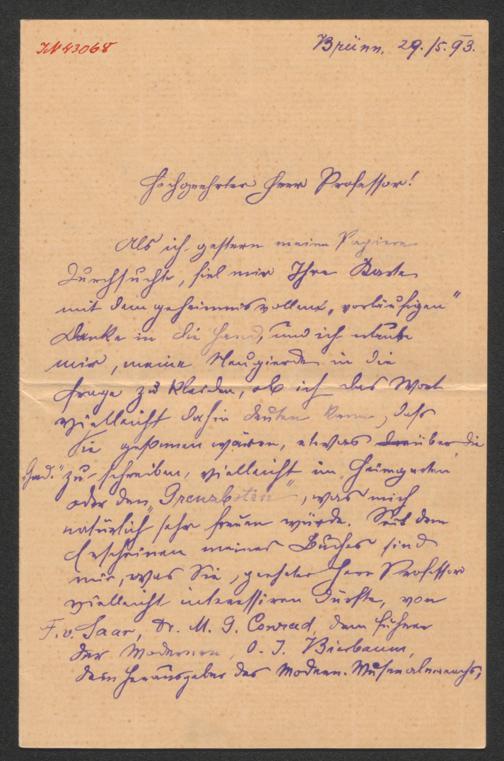 IN 43068
Brünn, 29./5. 93.
Hochgeehrter Herr Professor!
Als ich gestern meine Papiere
durchsuchte, fiel mir Ihre Karte
mit dem geheimnisvollen „vorläufigen"
Danke in die Hand, und ich erlaube
mir, meine Neugierde in die
Frage zu kleiden, ob ich das Wort
vielleicht dahin deuten kann, daß
Sie gesonnen wären, etwas über die
„Ged." zu schreiben, vielleicht im Heimgarten
oder den „Grenzboten", was mich
natürlich sehr freuen würde. Seit dem
Erscheinen meines Buches sind
mir, was Sie, geehrter Herr Professor
vielleicht interessiren dürfte, von
F. v. Saar, Dr. M. G. Conrad, dem Führer
der Modernen, O. J. Bierbaum,
dem Herausgeber des Modern. Musenalmanachs,